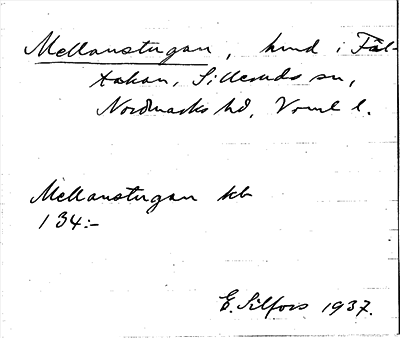 Mellanstugan, hmd i Fål-
takan, Silleruds sn,
Nordmarks hd, Vrml l.
Mellanstugan kb
134:-
E. Silfors 1937.